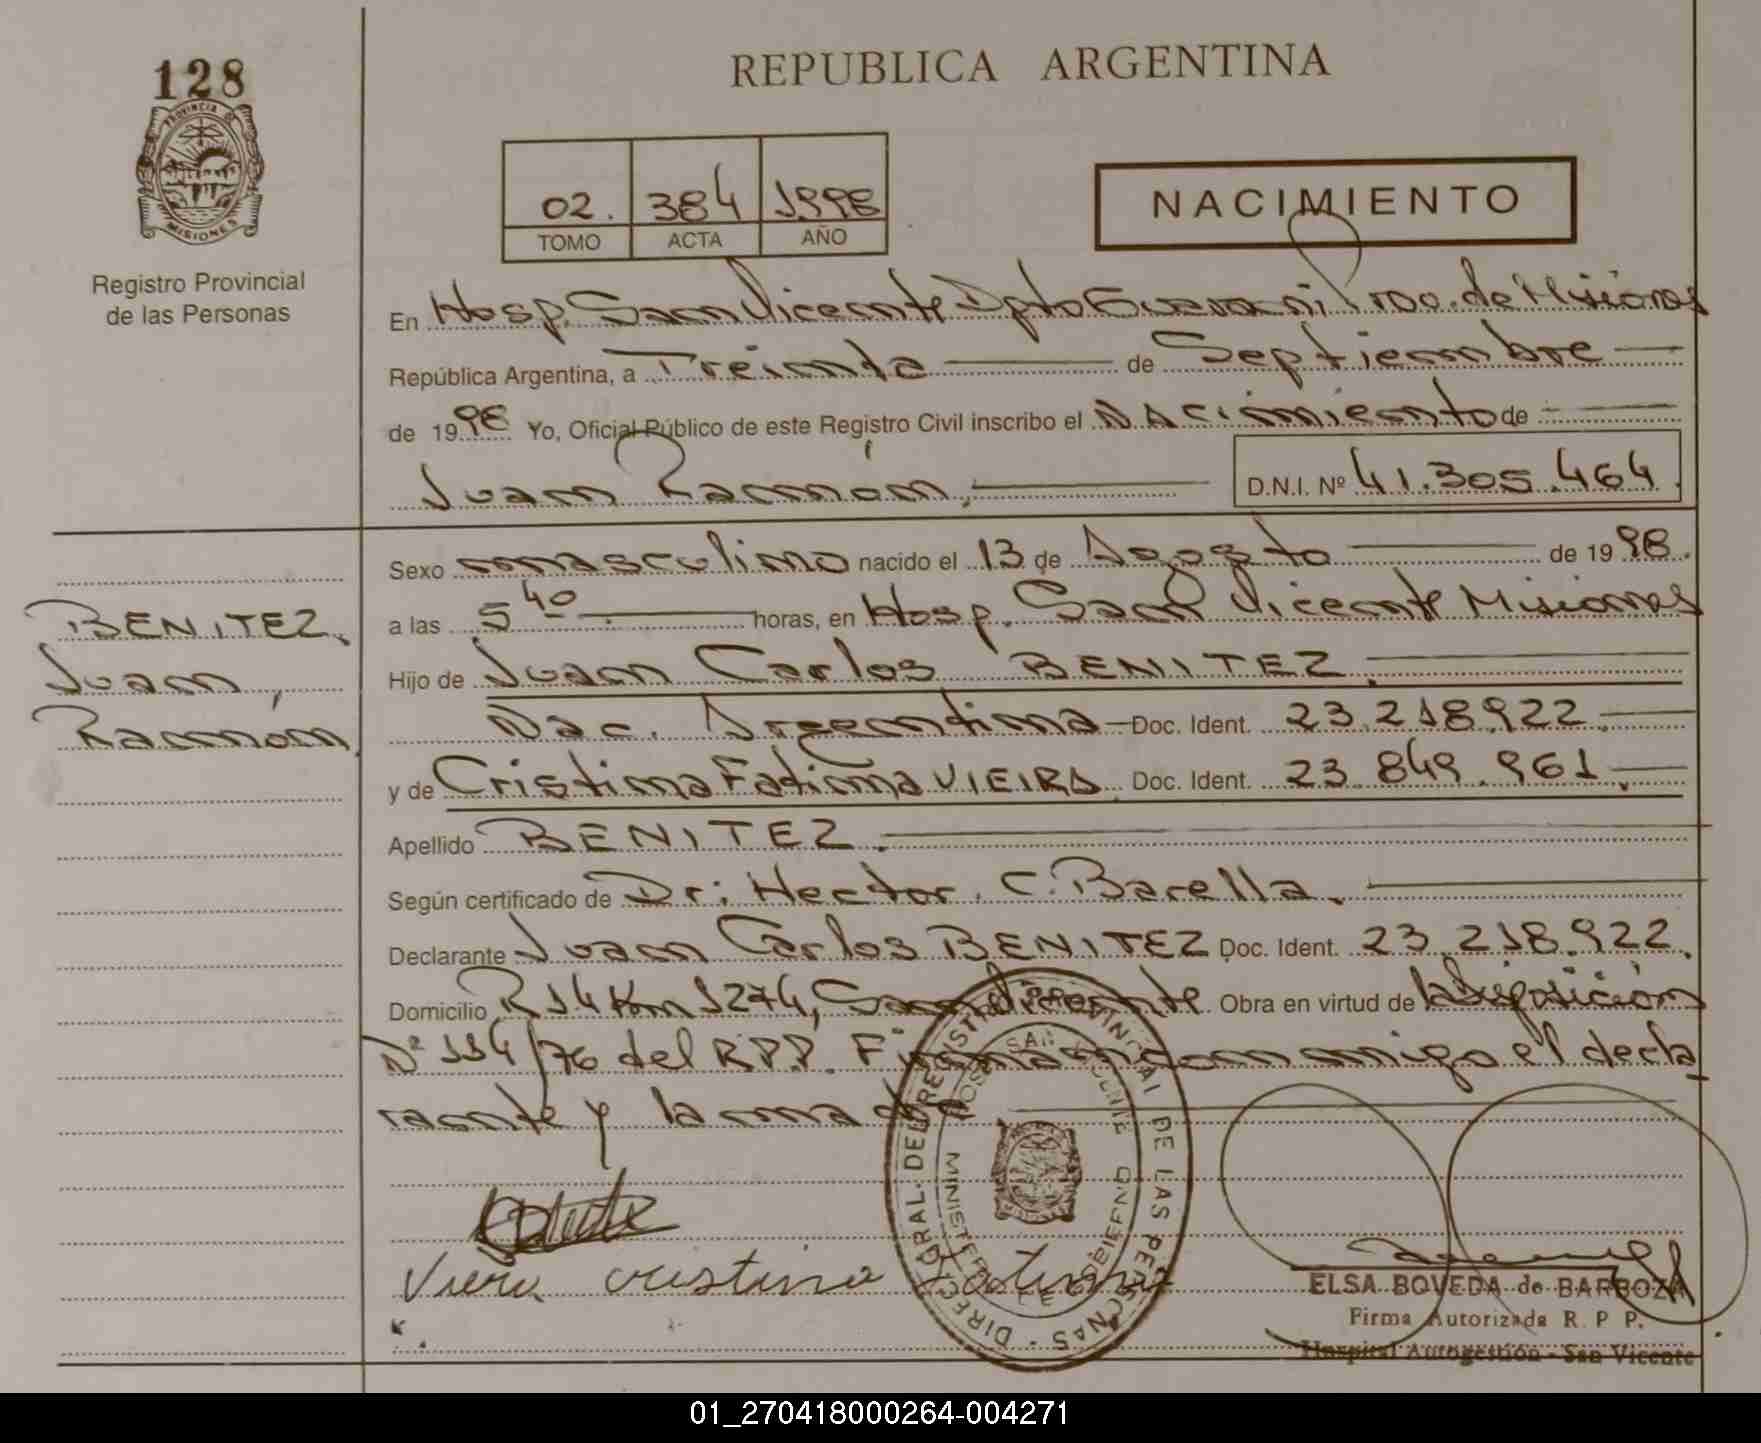 128
REPUBLICA ARGENTINA
PROVINCIA DE
MISIONES
Registro Provincial
de las Personas
02. 384 1998
TOMO ACTA AÑO
NACIMIENTO
En Hosp. San Vicente Dpto Guarani Prov. de Misiones
República Argentina, a Treinta de Septiembre
de 1998 Yo, Oficial Público de este Registro Civil inscribo el NAcimiento de
Juan Ramón, D.N.I. Nº 41.305.464
Sexo masculino nacido el 13 de Agosto de 1998.
a las 5 40 horas, en Hosp. San Vicente Misiones
BENITEZ,
Juan,
Ramón
Hijo de Juan Carlos BENITEZ
Nac. Argentina Doc. Ident. 23.218.922
y de Cristina Fatima VIEIRA Doc. Ident. 23.849.961
Apellido BENITEZ.
Según certificado de Dr: Hector C. Barella.
Declarante Juan Carlos BENITEZ Doc. Ident. 23.218.922.
Domicilio R14 Km 1274, San Vicente. Obra en virtud de la Disposición
Nº 114/76 del R.P.P. Firman conmigo el decla
rante y la madre
DIRECC. GRAL. DEL REGISTRO PROVINCIAL DE LAS PERSONAS
HOSP. SAN VICENTE
MINISTERIO DE GOBIERNO
Viera cristina Fatima
ELSA BOVEDA de BARBOZA
Firma Autorizada R. P. P.
Hospital Autogestión - San Vicente
01_270418000264-004271